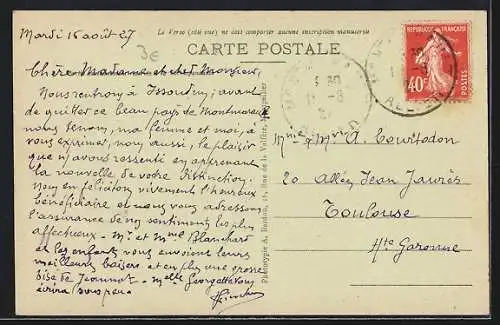 Mardi 16 août 27
3€
Le Verso (côté vue) ne doit comporter aucune inscription manuscrite
CARTE POSTALE
Chère Madame et cher Monsieur,
Nous rentrons à Issoudun; avant
de quitter ce beau pays de
nous tenons, ma femme et moi, à
vous exprimer, nous aussi, le plaisir
que n/ avons ressenti en apprenant
la nouvelle de votre distinction.
Nous en félicitons vivement l'heureux
bénéficiaire et nous vous adressons
l'assurance de nos sentiments les plus
affectueux. - Mr et Mme Blanchard
et les enfants vous envoient leurs
meilleurs baisers et en plus une grosse
bise de Jeannot - Melle Georgette vous
écrira sous peu.
Phototypie A. Bardou, Rue de la Vallière,
REPUBLIQUE FRANÇAISE
40c
POSTES
Mme & Mr A. Courtodon
20 Allées Jean Jaurès
Toulouse
Hte Garonne